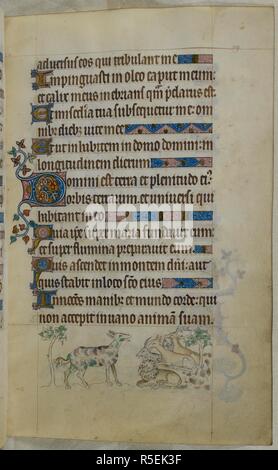 aduersus eos qui tribulant me
Impinguasti in oleo caput meum:
et calix meus inebrians qm p̄clarus est
Et mia tua subsequetur me: om
nib; dieb; uite mee
Et ut inhabitem in domo domini: in
longitudinem dierum
Domini est terra et plenitudo ei᾽
orbis terrarum, et uniuersi qui
habitant in eo
Quia ipse super maria fundauit eum:
et super flumina preparauit eum
Quis ascendet in montem dn̄i: aut
quis stabit in loco sc̄o eius
Innocens manib; et mundo corde: qui
non accepit in uano animā suam.
alamy
R5EK3F